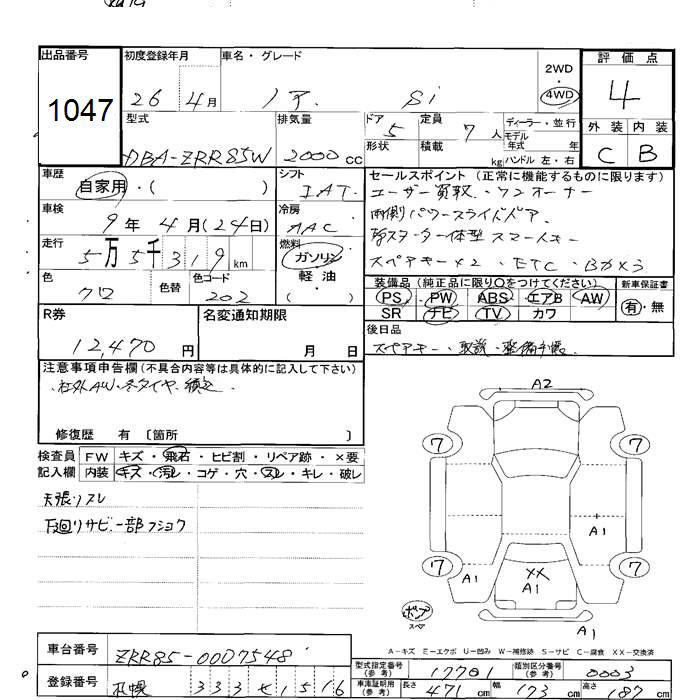 出品番号
1047
初度登録年月
26 4月
車名・グレード
ノア Si
2WD
・
4WD
評価点
4
外装 内装
C B
型式
DBA-ZRR85W
排気量
2000cc
ドア 5
定員 7人
ディーラー・並行
モデル年式 年
形状
積載 kg
ハンドル 左・右
車歴
自家用・( )
シフト
IAT
セールスポイント (正常に機能するものに限ります)
ユーザー買取、ワンオーナー
両側パワースライドドア
スターター体型 スマートキー
スペアキー×2、ETC、Bカメラ
車検
9年 4月(24日)
冷房
AAC
走行
5万5千319km
燃料
ガソリン
軽・油
( )
色
クロ
色替
色コード
202
装備品 (純正品に限り○をつけてください)
PS・PW・ABS・エアB・AW
SR・ナビ・TV・カワ
新車保証書
有・無
R券
12,470円
名変通知期限
月 日
後日品
スペアキー、取説、整備手帳
注意事項申告欄(不具合内容等は具体的に記入して下さい)
社外AW、冬タイヤ、積込
修復歴 有 〔箇所 〕
検査員記入欄
FW キズ・飛石・ヒビ割・リペア跡・×要
内装 キズ・汚レ・コゲ・穴・スレ・キレ・破レ
天張リスレ
下廻リサビ一部フショク
A2
7 7
A1
7 7
A1 XX A1
A1
スペア
A1
A-キズ E-エクボ U-凹み W-補修跡 S-サビ C-腐食 XX-交換済
車台番号
ZRR85-0007548
型式指定番号(参考)
17701
類別区分番号(参考)
0003
登録番号
札幌 333 せ 1516
車庫証明用(参考)
長さ 471cm
幅 173cm
高さ 187cm